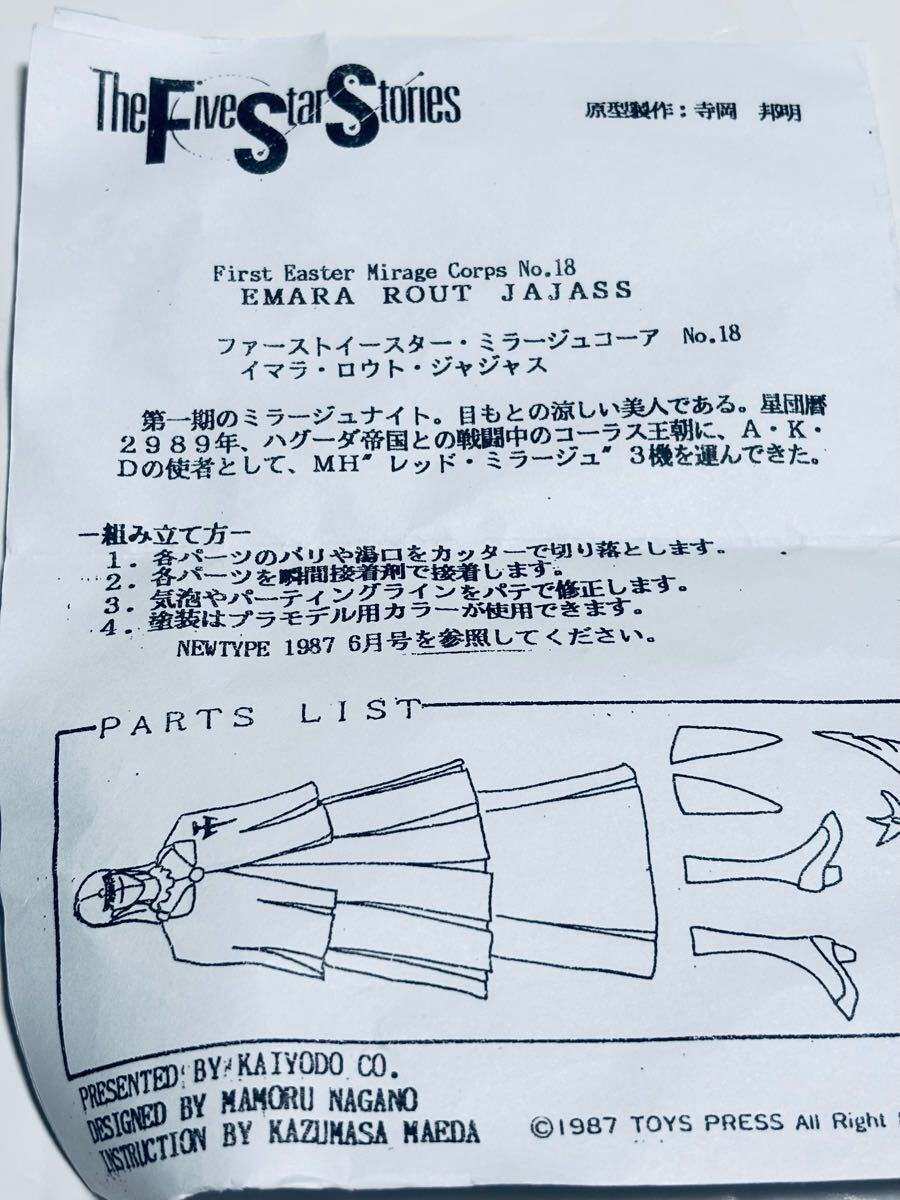 The Five Star Stories
原型製作：寺岡　邦明
First Easter Mirage Corps No.18
EMARA ROUT JAJASS
ファーストイースター・ミラージュコーア　No.18
イマラ・ロウト・ジャジャス
第一期のミラージュナイト。目もとの涼しい美人である。星団暦
２９８９年、ハグーダ帝国との戦闘中のコーラス王朝に、Ａ・Ｋ・
Ｄの使者として、ＭＨ〝レッド・ミラージュ〟３機を運んできた。
－組み立て方－
１．各パーツのバリや湯口をカッターで切り落とします。
２．各パーツを瞬間接着剤で接着します。
３．気泡やパーティングラインをパテで修正します。
４．塗装はプラモデル用カラーが使用できます。
NEWTYPE 1987 6月号を参照してください。
PARTS LIST
PRESENTED BY KAIYODO CO.
DESIGNED BY MAMORU NAGANO
INSTRUCTION BY KAZUMASA MAEDA
©1987 TOYS PRESS All Right